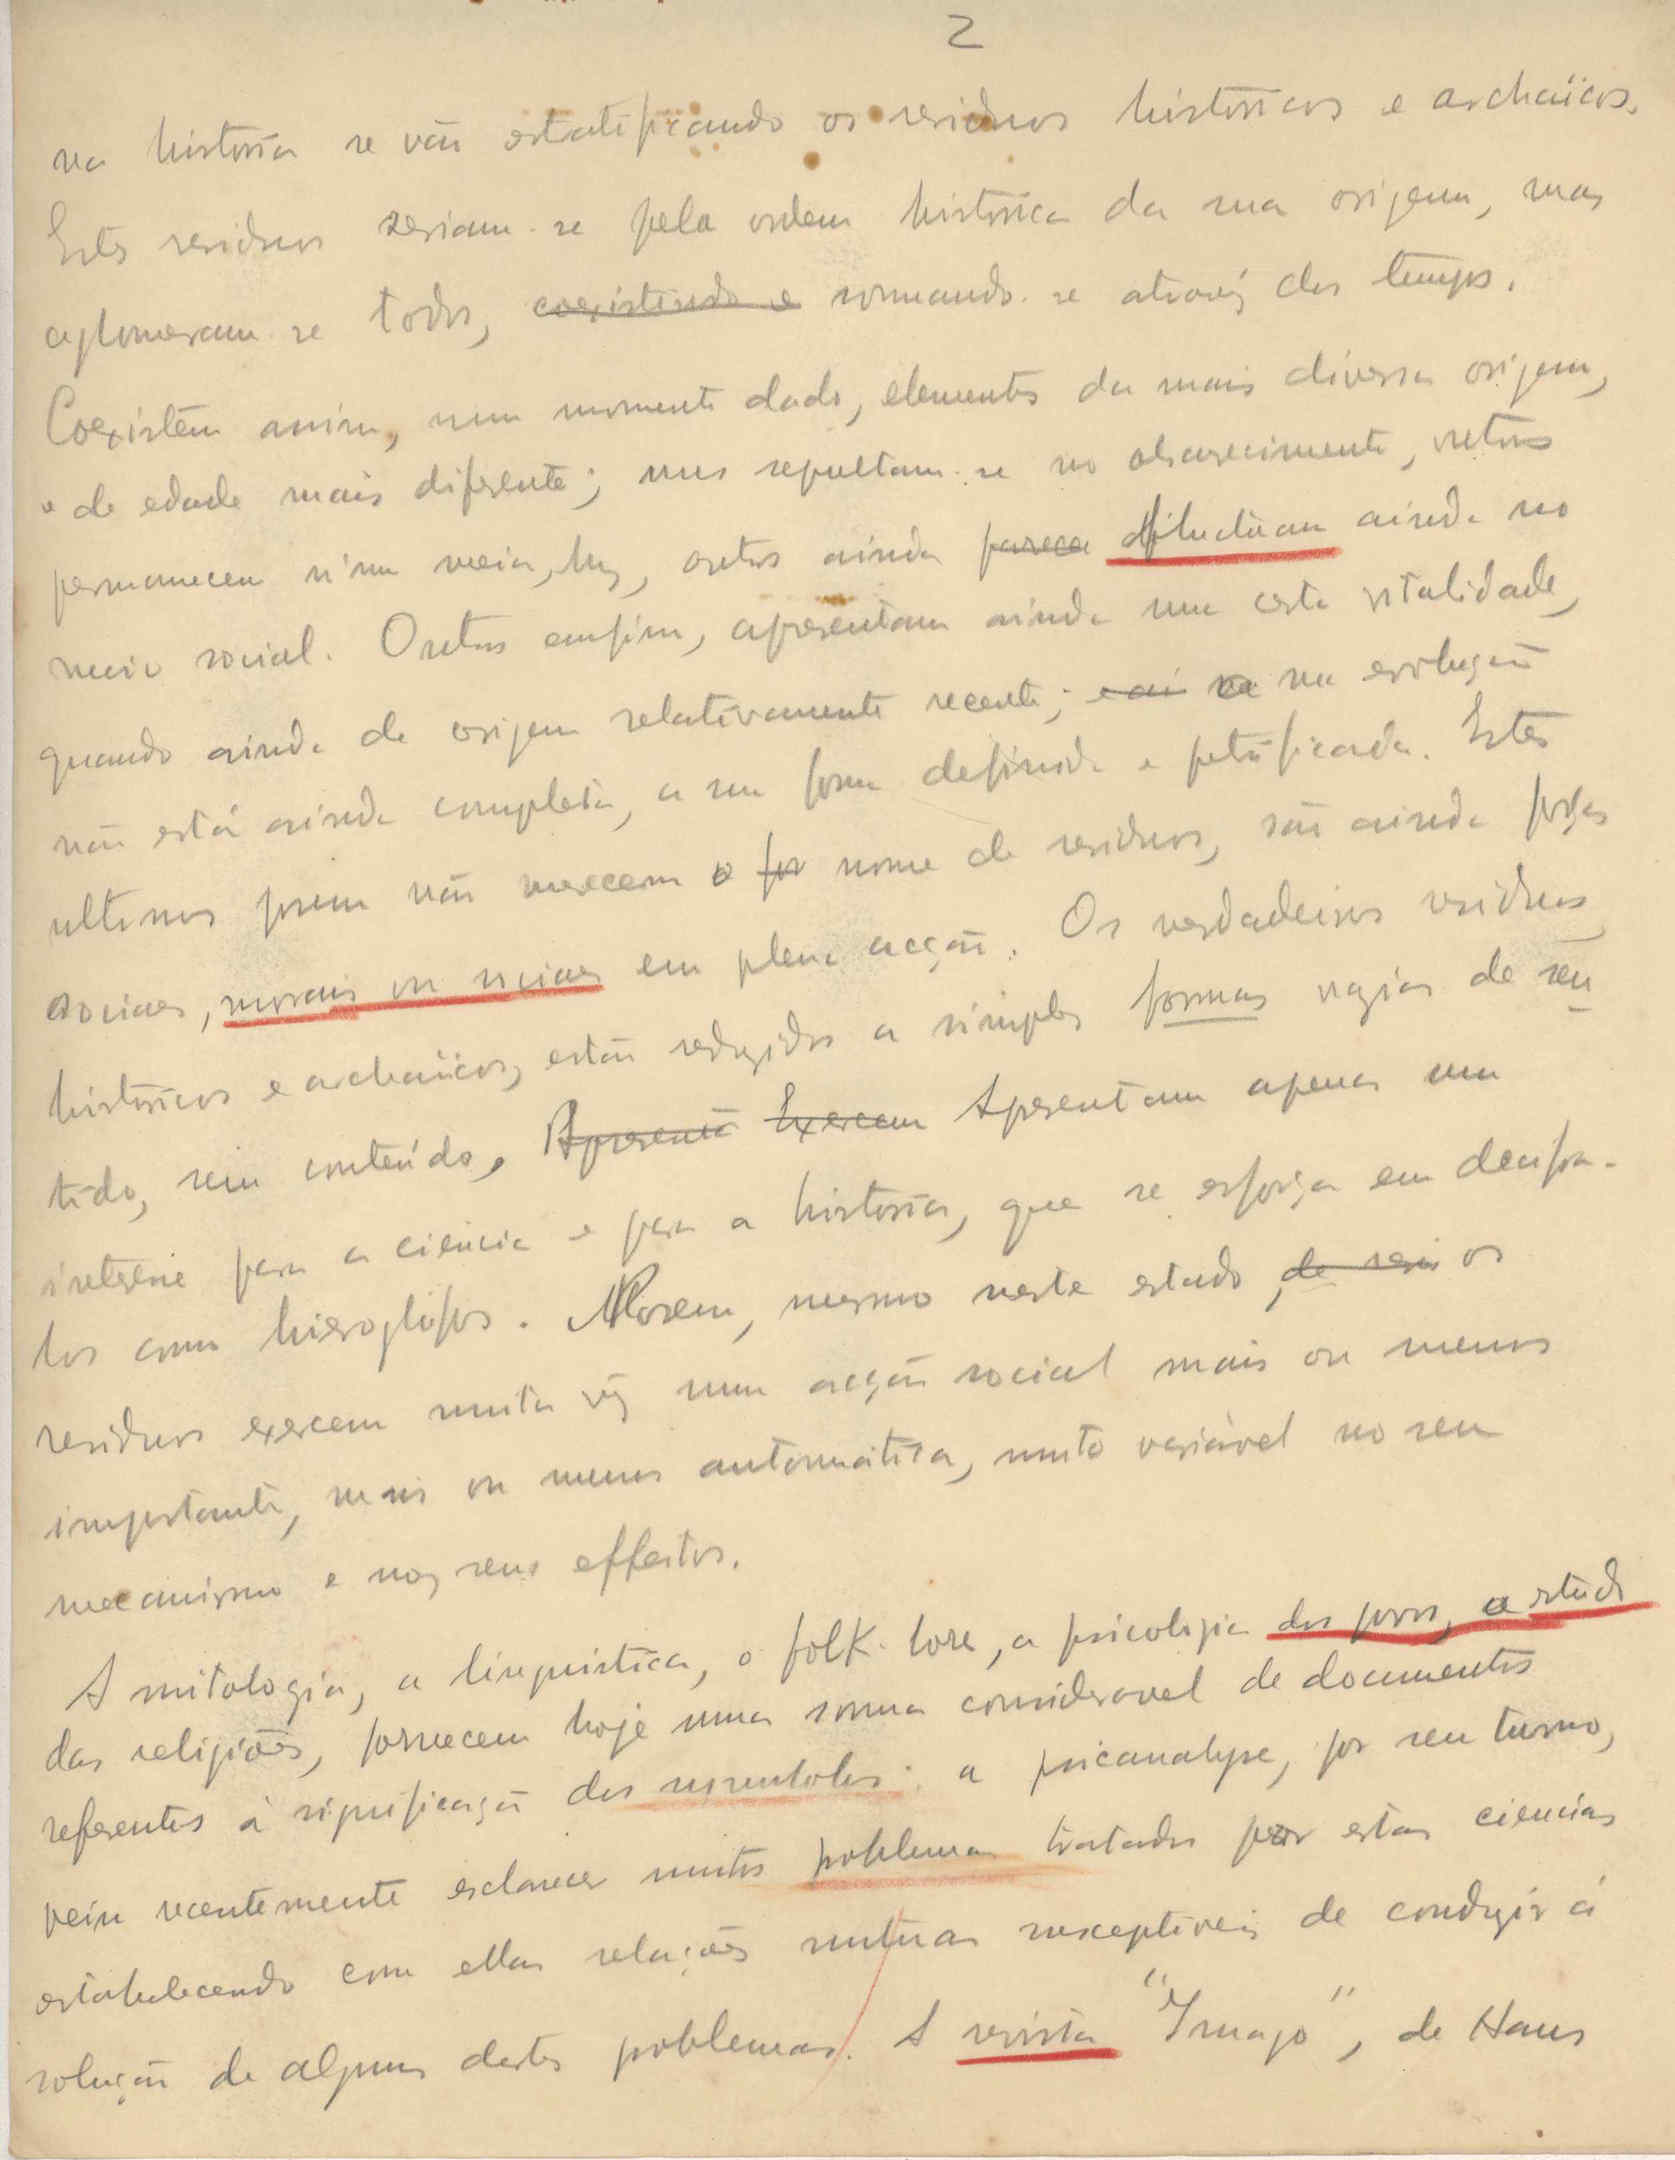 2
na historia se vão estratificando os residuos históricos e archaïcos.
Estes residuos seriam-se pela ordem histórica da sua origem, mas
aglomeram-se todos, coexistindo e somando-se atravéz dos tempos.
Coexistem assim, num momento dado, elementos da mais diversa origem,
e de edade mais diferente; uns sepultam-se no obscurecimento, outros
permanecem n'uma meia, luz, outros ainda parece flutuam ainda no
meio social. Outros emfim, apresentam ainda uma certa vitalidade,
quando ainda de origem relativamente recente; e ai na na evolução
não está ainda completa, a sua forma definida e petrificada. Estes
ultimos porem não merecem o for nome de residuos, são ainda forças
sociaes, morais ou sociaes em plena acção. Os verdadeiros residuos
históricos e archaïcos, estão reduzidos a simples formas vazias de sen-
tido, sem conteúdo. Apresentã Exercem Apresentam apenas um
interesse para a ciencia e para a historia, que se esforça em decifra-
los como hieroglifos. Porem, mesmo neste estado, de resi os
residuos exercem muita vez uma acção social mais ou menos
importante, mais ou menos automatica, muito variável no seu
mecanismo e nos seus effeitos.
A mitologia, a linguistica, o folk-lore, a psicologia dos povos, o estudo
das religiões, fornecem hoje uma soma consideravel de documentos
referentes à significação dos symbolos: a psicanalyse, por seu turno,
veiu recentemente esclarecer muitos problemas tratados por estas ciencias
estabelecendo com ellas relações mutuas susceptiveis de conduzir á
solução de alguns destes problemas. A revista "Imago", de Hans